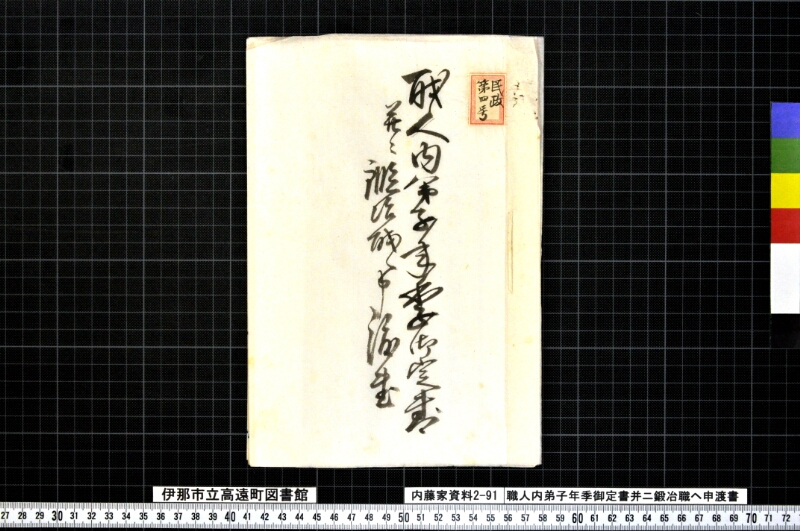 民政
第四号
職人内弟子年季御定書
并ニ鍛冶職へ申渡書
伊那市立高遠町図書館
内藤家資料2-91
職人内弟子年季御定書并二鍛冶職へ申渡書
27 28 29 30 31 32 33 34 35 36 37 38 39 40 41 42 43 44 45 46 47 48 49 50 51 52 53 54 55 56 57 58 59 60 61 62 63 64 65 66 67 68 69 70 71 72